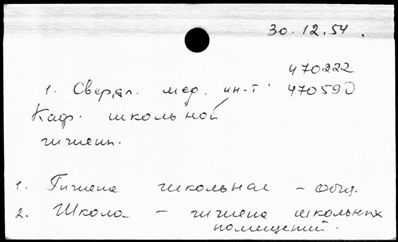 30.12.54.
470222
1. Свердл. мед. ин-т 470590
Каф. школьной
гигиены.
1. Гигиена школьная – общ.
2. Школа – гигиена школьных
помещений.